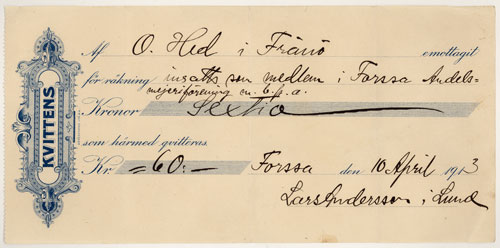 KVITTENS
Af O. Hed i Frånö emottagit
för räkning insatts som medlem i Forssa Andels-
mejeriförening m. b. p. a.
Kronor Sextio
som härmed qvitteras.
Kr. =60:- Forssa den 10 April 1913
Lars Andersson i Lund